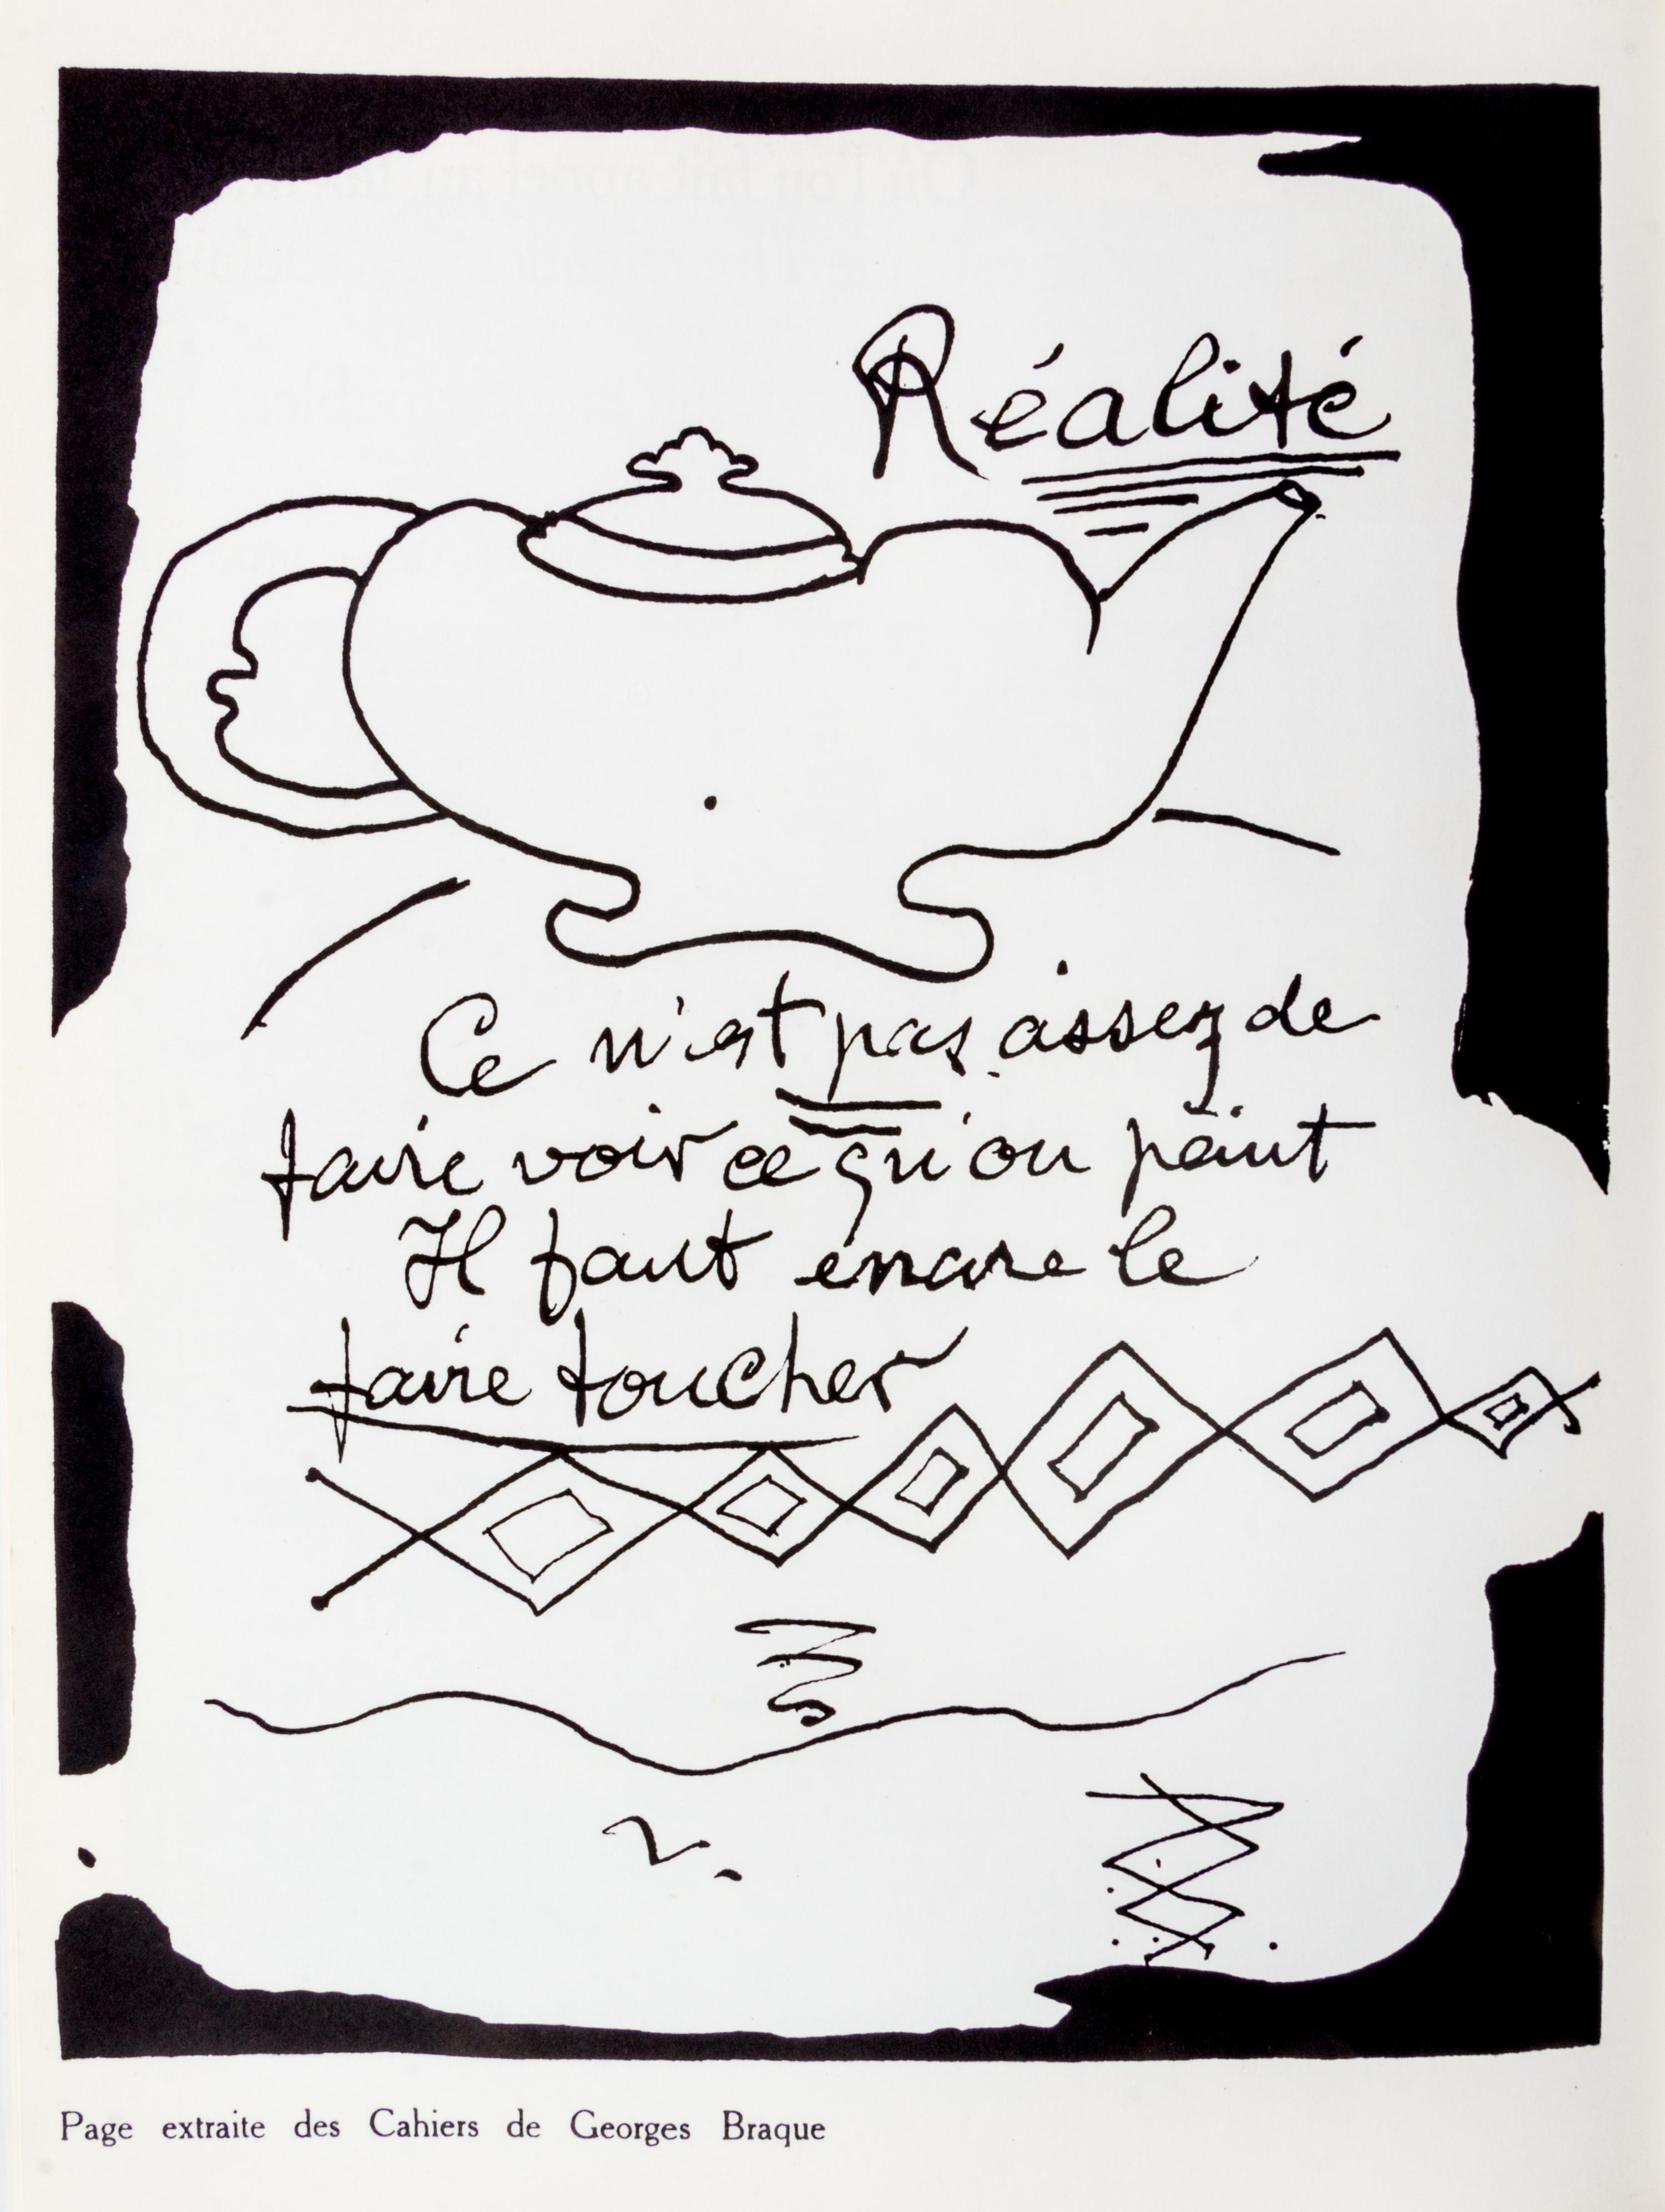 Réalité
Ce n'est pas assez de
faire voir ce qu'on peint
Il faut encore le
faire toucher
Page extraite des Cahiers de Georges Braque